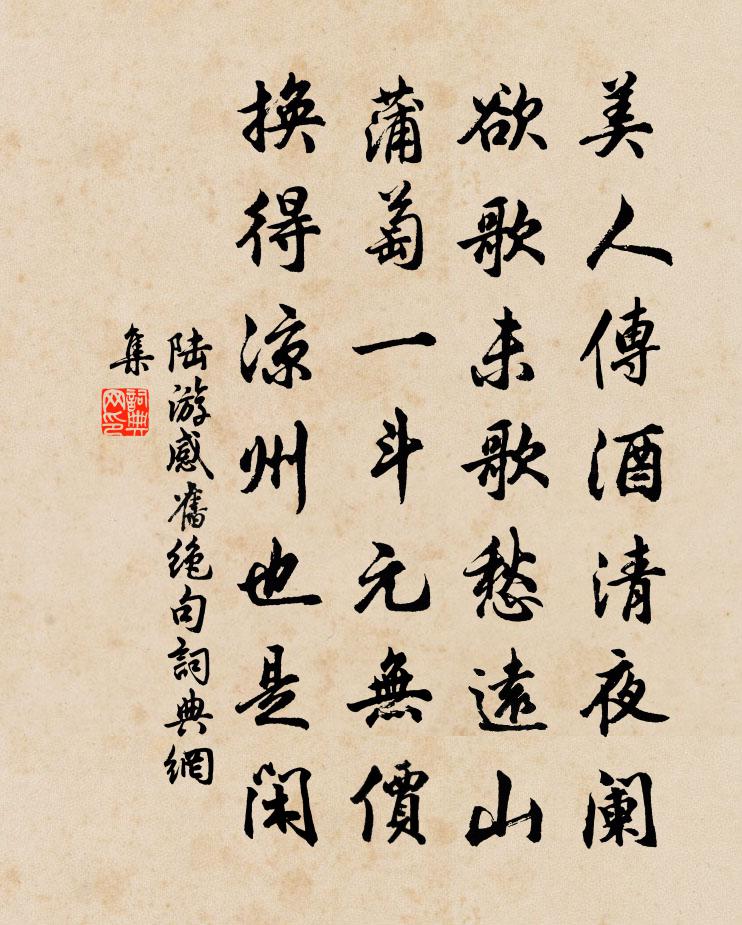 美人傳酒清夜闌
欲歌未歌愁遠山
蒲萄一斗元無價
換得涼州也是閑
陆游感舊绝句詞典網
集
詞典
网印